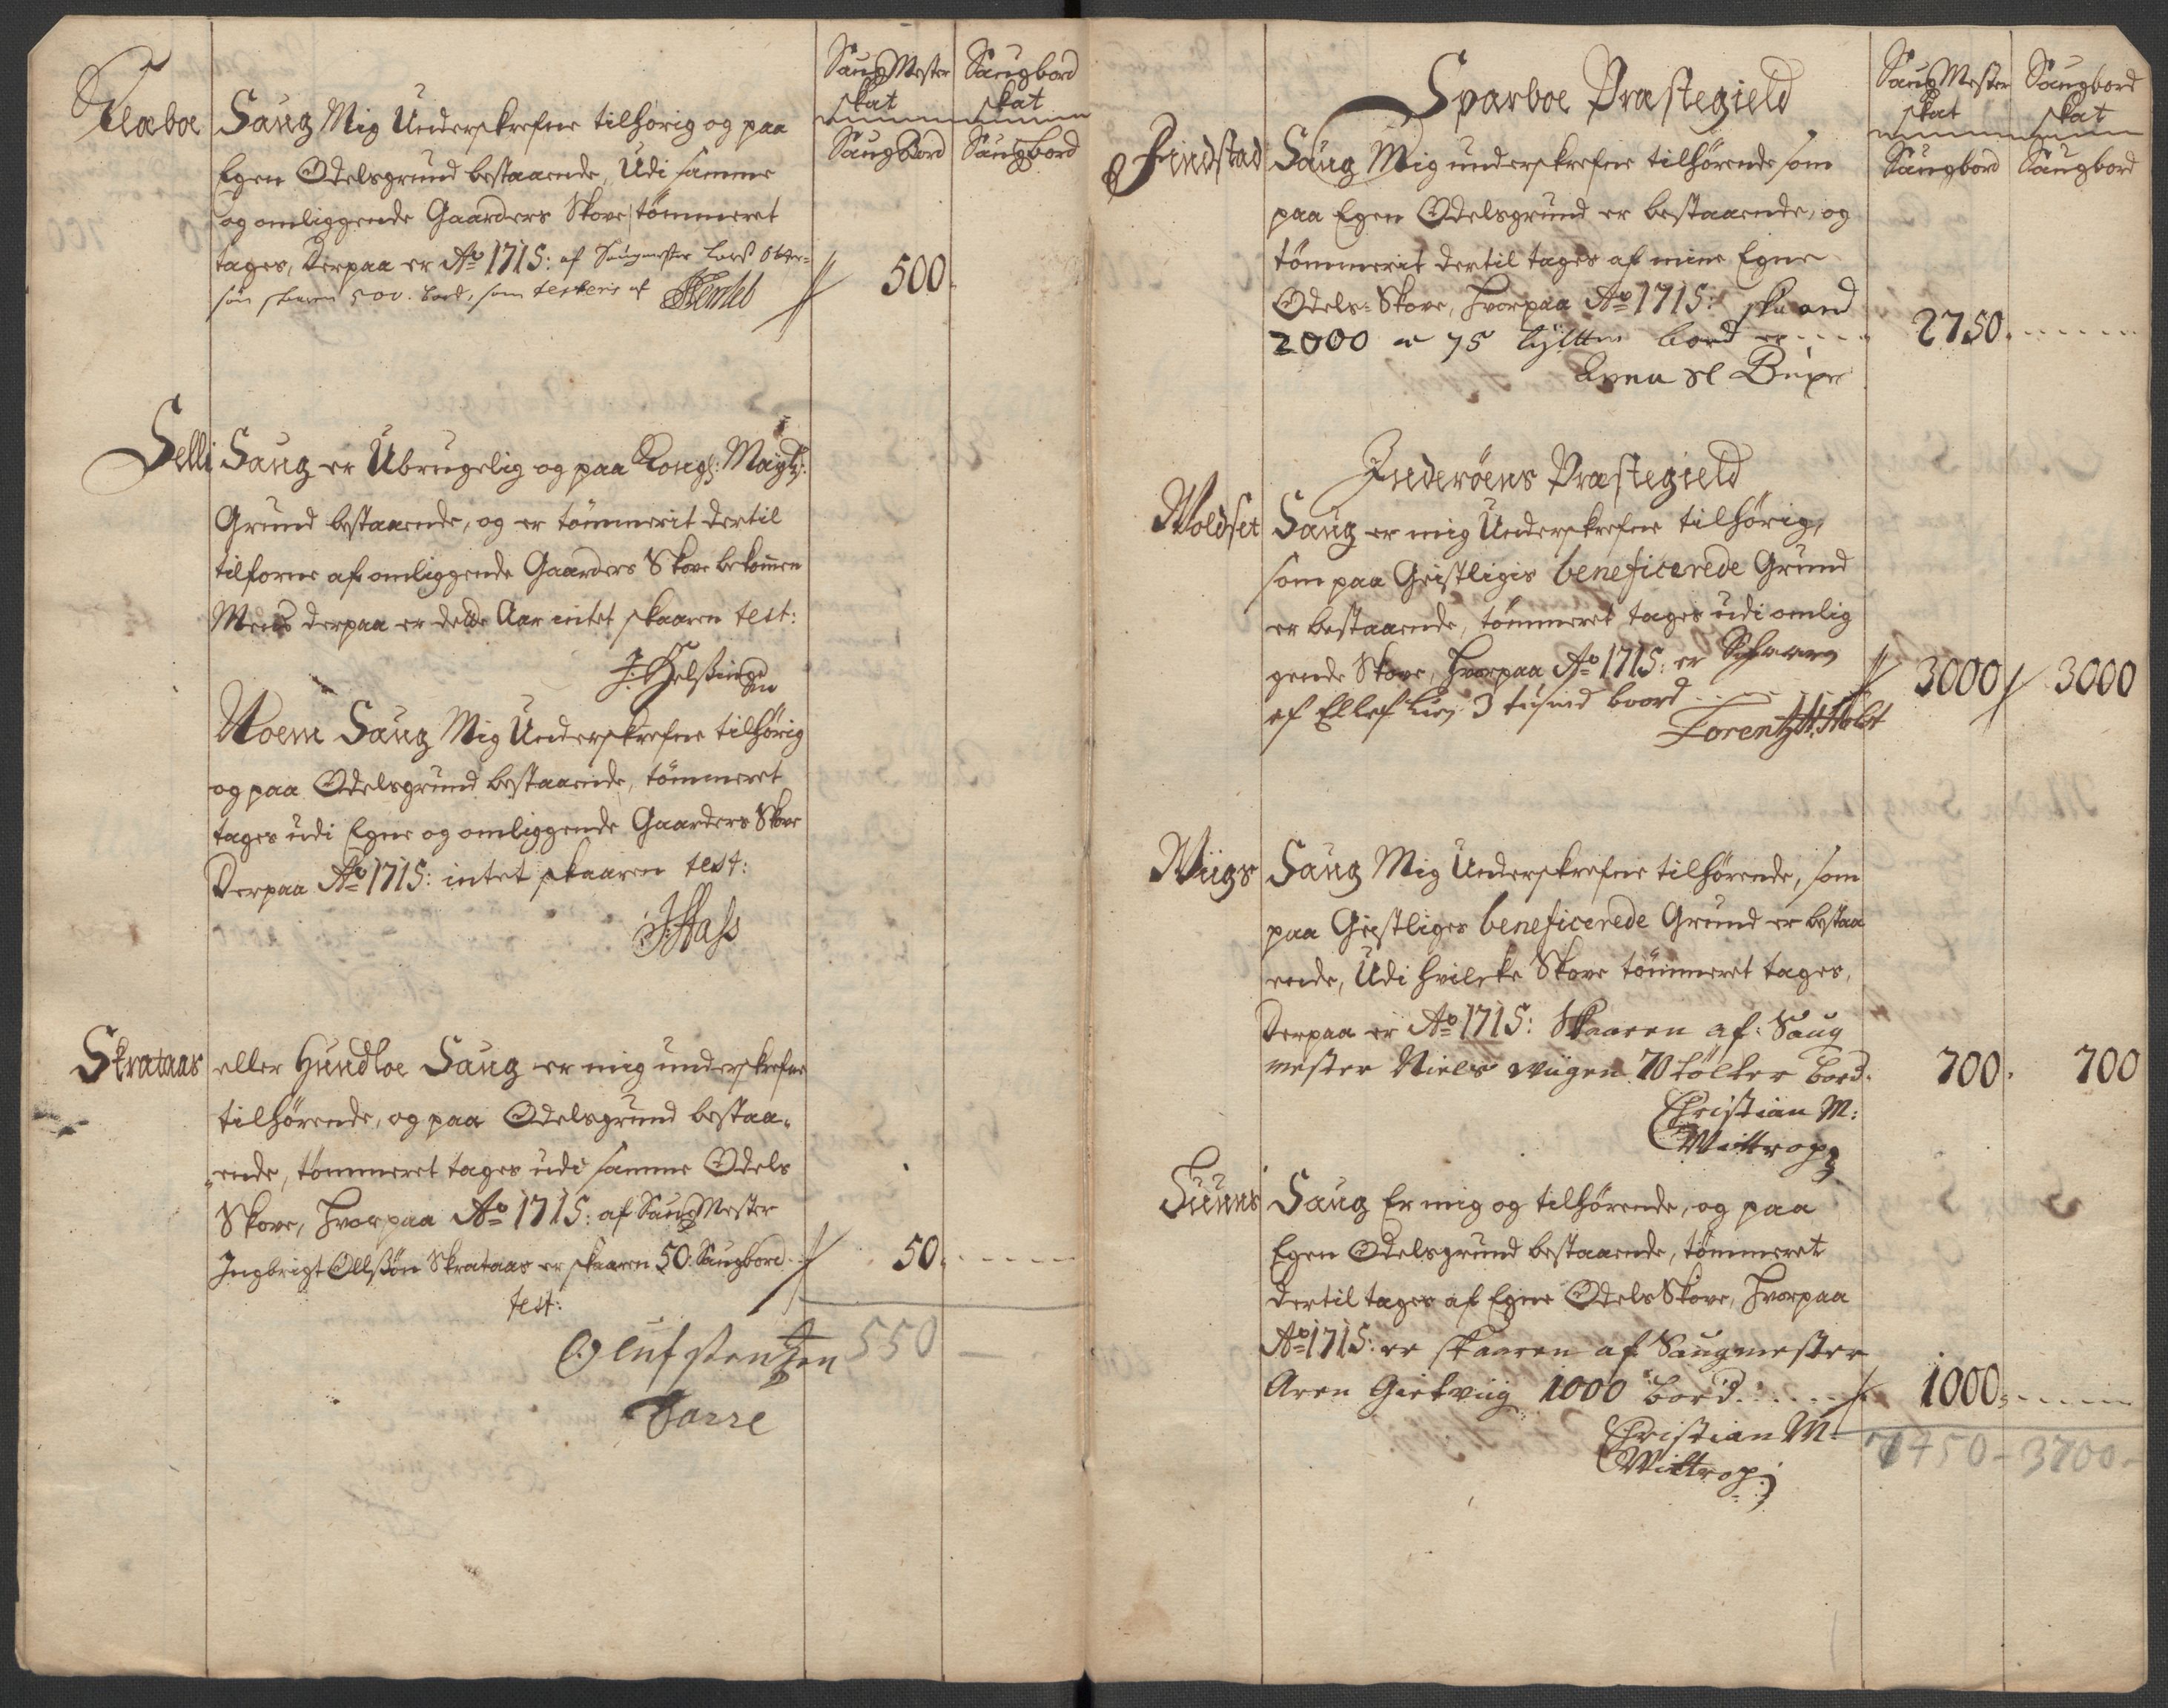 SaugMester Saugbord
skat skat
SaugBord Saugbord
Klæboe Saug Mig Underskrefne tilhørig og paa
Egen Odelsgrund bestaaende, Udi samme
og omliggende Gaarders Skove tømmeret
tages, Derpaa er Aº 1715: af Saugmester Lars
søn skaaren 500. bord, som testeris af 500.
Selli Saug er Ubrugelig og paa Kongl: Mayts:
Grund bestaaende, og er tømmerit dertil
tilforne af omliggende Gaarders Skove bekomen
Mens derpaa er dette Aar intet skaaren test:
Noem Saug Mig Underskrefne tilhørig
og paa Odelsgrund bestaaende, tømmeret
tages udi Egne og omliggende Gaarders Skove
Derpaa Aº 1715: intet skaaren test:
Skrataas eller Hundloe Saug er mig underskrefne
tilhørende, og paa Odelsgrund bestaa-
-ende, tømmeret tages udi samme Odels
Skove, hvorpaa Aº 1715: af SaugMester
Ingbrigt Ollssøn Skrataas er skaaren 50: Saugbord 50.
test:
Oluf
550
Sparboe Præstegield
SaugMester Saugbord
skat skat
Saugbord Saugbord
Findstad Saug Mig underskrefne tilhørende som
paa Egen Odelsgrund er bestaaende, og
tømmerit dertil tages af mine Egne
Odels-Skove, hvorpaa Aº 1715:
2000 75 bord er 2750.
Inderøens Præstegield
Woldset Saug er mig Underskrefne tilhørig,
som paa Geistligis beneficerede Grund
er bestaaende, tømmeret tages udi omlig
gende Skove, hvorpaa Aº 1715: er
af Ellef 3 tusind boord 3000 3000
Lorentz Holst
Wiigs Saug Mig Underskrefne tilhørende, som
paa Geistliges beneficerede Grund er bestaa
ende, Udi hvilcke Skove tømmeret tages,
Derpaa er Aº 1715: Skaaren af Saug
mester Niels Wiigen 70 tolter bord. 700. 700
Christian M:
Wittrop
Suuns Saug Er mig og tilhørende, og paa
Egen Odelsgrund bestaaende, tømmeret
dertil tages af Egne OdelsSkove, hvorpaa
Aº 1715: er skaaren af Saugmester
Aren Gielwiig 1000 bord 1000
Christian M:
Wittrop
7450 - 3700 -